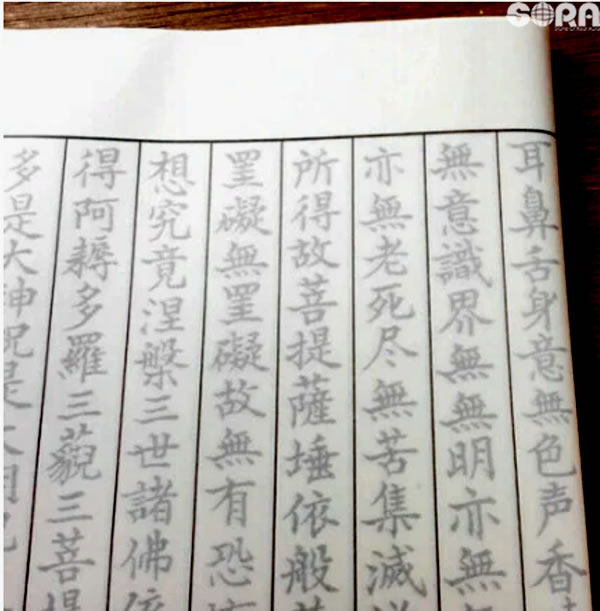 SORA
耳鼻舌身意無色声香
無意識界無無明亦無
亦無老死尽無苦集滅
所得故菩提薩埵依般
罣礙無罣礙故無有恐
想究竟涅槃三世諸佛依
得阿耨多羅三藐三菩提
多是大神呪是大明呪